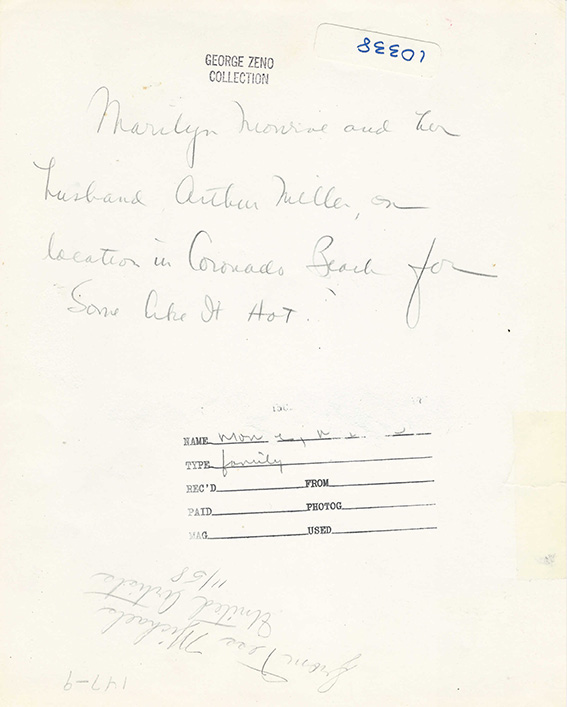 10338
GEORGE ZENO
COLLECTION
Marilyn Monroe and her
husband Arthur Miller, on
location in Coronado Beach for
"Some Like It Hot."
NAME
TYPE family
REC'D FROM
PAID PHOTOG
MAG USED
from Tess Michaels
United Artists
11/58
147-9